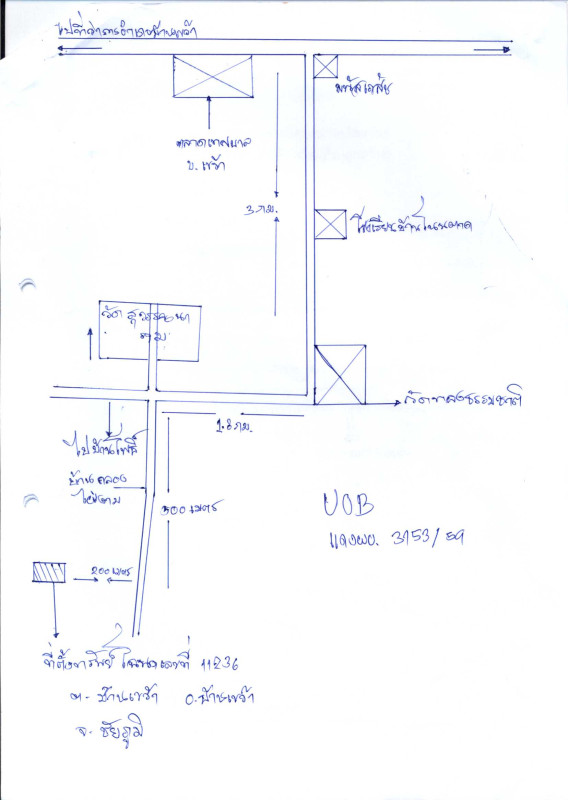 ไปที่ว่าการอำเภอบ้านเขว้า
ตลาดเทศบาล
บ. เขว้า
3 กม.
โรงเรียนบ้านโนน
วัดสุวรรณนา
ราม
วัด ธรรมชาติ
1.8 กม.
ไปบ้านโพธิ์
บ้านคลอง
ไผ่งาม
500 เมตร
UOB
แดงผบ. 3153/59
200 เมตร
ที่ตั้งทรัพย์ โฉนดเลขที่ 11236
ต. บ้านเขว้า อ. บ้านเขว้า
จ. ชัยภูมิ